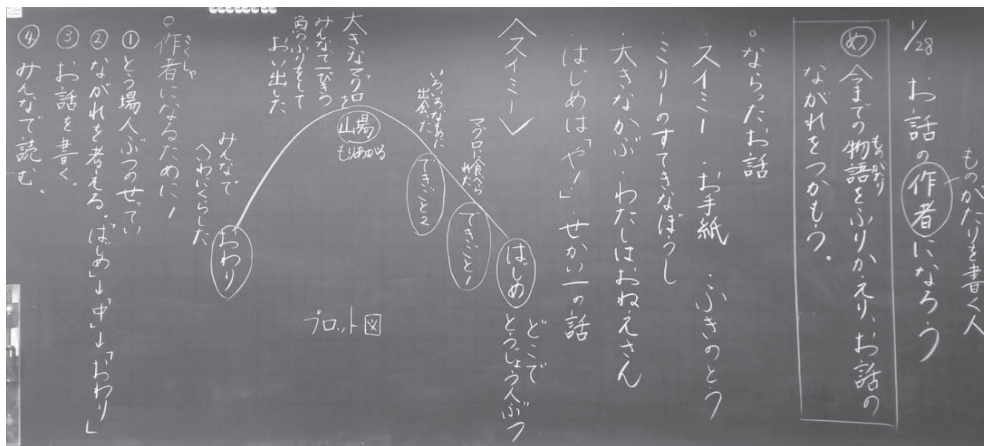 1/28 お話の作者になろう
ものがたりを書く人
め 今までの物語をふりかえり、お話の
ものがたり
ながれをつかもう。
○ならったお話
・スイミー ・お手紙 ・ふきのとう
・ミリーのすてきなぼうし
・大きなかぶ ・わたしはおねえさん
・はじめは「や!」 ・せかい一の話
<スイミー>
はじめ
どこで
とうじょう人ぶつ
できごと1
マグロに食べら
れた
できごと2
いろいろなものに
出会った
山場
もりあがる
大きなマグロを
みんなで一ぴきの
角のふりをして
おい出した
おわり
みんなで
くらした
プロット図
○作者になるために!
さくしゃ
①とう場人ぶつのせってい
②ながれを考える。「はじめ」→「中」→「おわり」
③お話を書く。
④みんなで読む。